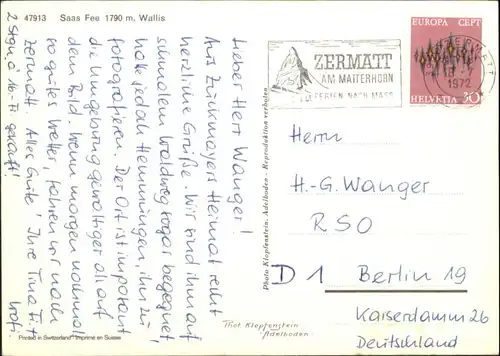 47913 Saas Fee 1790 m. Wallis
Lieber Herr Wanger!
Aus Zuckmayers Heimat recht
herzliche Grüße. Wir sind ihm auf
schmalem Waldweg sogar begegnet,
hatte jedoch Hemmungen, ihn zu
fotografieren. Der Ort ist imposant
die Umgebung gewaltiger als auf
dem Bild. Wenn morgen nochmal
so gutes Wetter, fahren wir nach
Zermatt. Alles Gute! Ihre Tina
Printed in Switzerland Imprimé en Suisse
Photo Klopfenstein, Adelboden - Reproduktion verboten
Phot. Klopfenstein
Adelboden
ZERMATT
AM MATTERHORN
FERIEN NACH MASS
EUROPA CEPT
1972
HELVETIA 30
Herrn
H.-G. Wanger
RSO
D 1 Berlin 19
Kaiserdamm 26
Deutschland